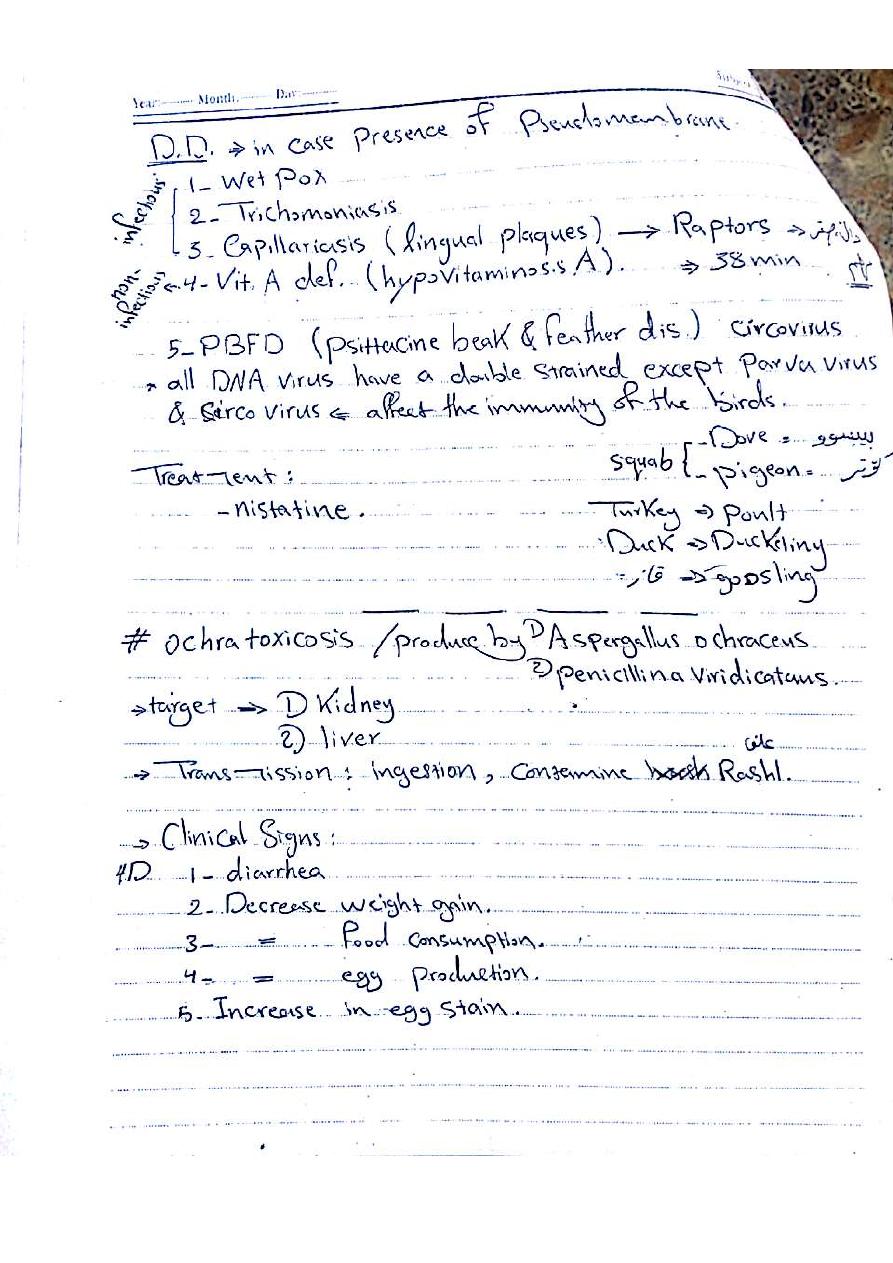 Year: Month. Day:
D.D. → in case presence of Pseudomembrane.
infectious
1- Wet Pox
2- Trichomoniasis
3- Capillariasis (lingual plaques) → Raptors →
non infectious ← 4- Vit. A def. (hypovitaminosis A). ⇒ 38 min
5- PBFD (psittacine beak & feather dis.) circovirus
* all DNA virus have a double strained except Parvu virus
& Sirco virus ⇐ affect the immunity of the birds.
squab { - Dove =
- pigeon = کۆتر
Treatment :
- nistatine.
Turkey ⇒ Poult
Duck ⇒ Duckeliny
قاز ⇒ goosling
# ochratoxicosis / produce by 1) Aspergallus ochraceus
2) penicillina Viridicataus.
→ target → 1) Kidney
2) liver
علف
→ Transmission : ingestion, Contemine Rashl.
→ Clinical Signs :
4D 1- diarrhea
2- Decrease weight gain.
3- = Food Consumption.
4- = egg production.
5- Increase in egg stain.